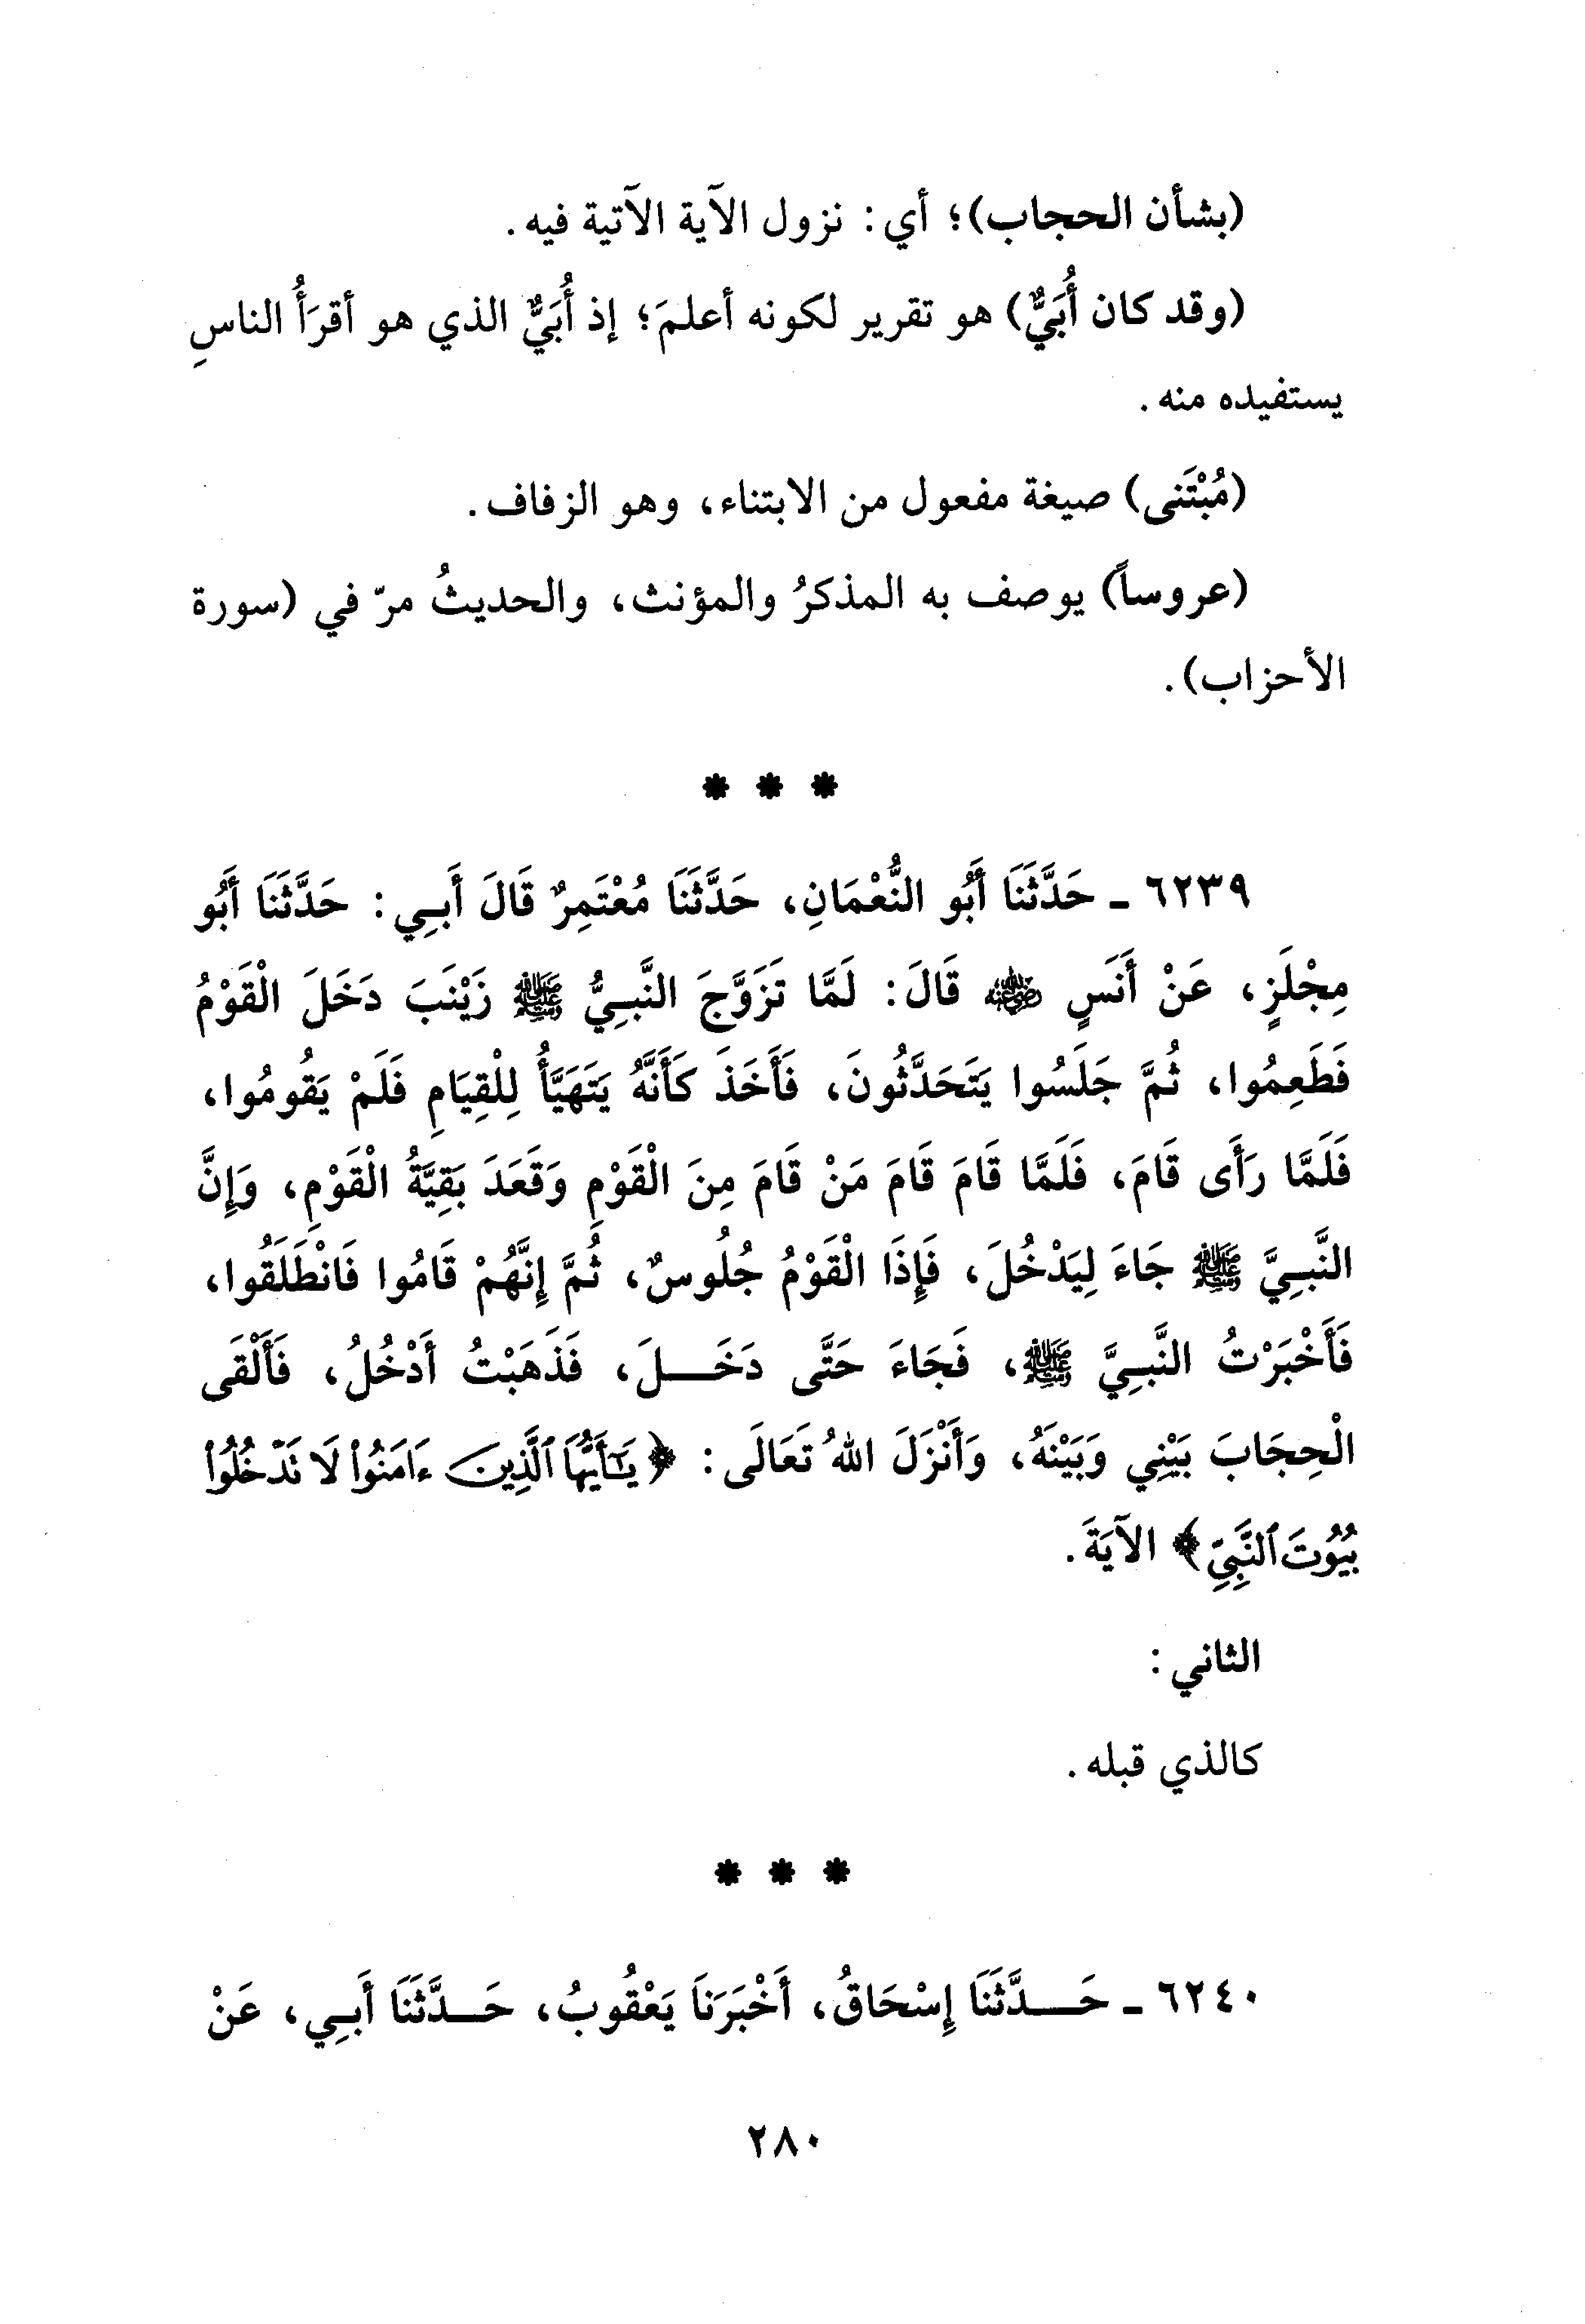 (بشأن الحجاب)؛ أي: نزول الآية الآتية فيه.
(وقد كان أُبَيٌّ) هو تقرير لكونه أعلمَ؛ إذ أُبَيٌّ الذي هو أقرَأُ الناسِ
يستفيده منه.
(مُبْتَنى) صيغة مفعول من الابتناء، وهو الزفاف.
(عروساً) يوصف به المذكرُ والمؤنث، والحديثُ مرّ في (سورة
الأحزاب).
* * *
٦٢٣٩ ـ حَدَّثَنَا أَبُو النُّعْمَانِ، حَدَّثَنَا مُعْتَمِرٌ قَالَ أَبِي: حَدَّثَنَا أَبُو
مِجْلَزٍ، عَنْ أَنَسٍ رضي الله عنه قَالَ: لَمَّا تَزَوَّجَ النَّبِيُّ ﷺ زَيْنَبَ دَخَلَ الْقَوْمُ
فَطَعِمُوا، ثُمَّ جَلَسُوا يَتَحَدَّثُونَ، فَأَخَذَ كَأَنَّهُ يَتَهَيَّأُ لِلْقِيَامِ فَلَمْ يَقُومُوا،
فَلَمَّا رَأَى قَامَ، فَلَمَّا قَامَ قَامَ مَنْ قَامَ مِنَ الْقَوْمِ وَقَعَدَ بَقِيَّةُ الْقَوْمِ، وَإِنَّ
النَّبِيَّ ﷺ جَاءَ لِيَدْخُلَ، فَإِذَا الْقَوْمُ جُلُوسٌ، ثُمَّ إِنَّهُمْ قَامُوا فَانْطَلَقُوا،
فَأَخْبَرْتُ النَّبِيَّ ﷺ، فَجَاءَ حَتَّى دَخَلَ، فَذَهَبْتُ أَدْخُلُ، فَأَلْقَى
الْحِجَابَ بَيْنِي وَبَيْنَهُ، وَأَنْزَلَ اللهُ تَعَالَى: ﴿يَٰٓأَيُّهَا ٱلَّذِينَ ءَامَنُوا۟ لَا تَدْخُلُوا۟
بُيُوتَ ٱلنَّبِيِّ﴾ الآيَةَ.
الثاني:
كالذي قبله.
* * *
٦٢٤٠ ـ حَدَّثَنَا إِسْحَاقُ، أَخْبَرَنَا يَعْقُوبُ، حَدَّثَنَا أَبِي، عَنْ
٢٨٠